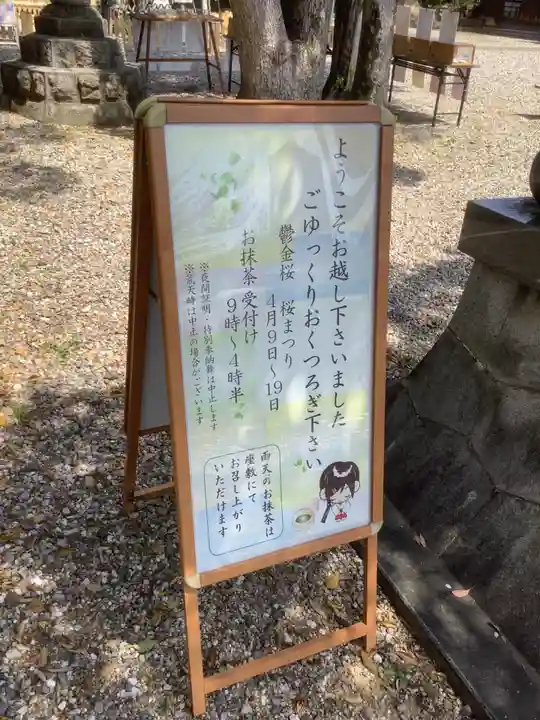 ようこそお越し下さいました
ごゆっくりおくつろぎ下さい
鬱金桜 桜まつり
4月9日~19日
お抹茶受付け
9時~4時半
※夜間証明・特別奉納舞は中止します
※荒天時は中止の場合がございます
雨天のお抹茶は
座敷にて
お召し上がり
いただけます